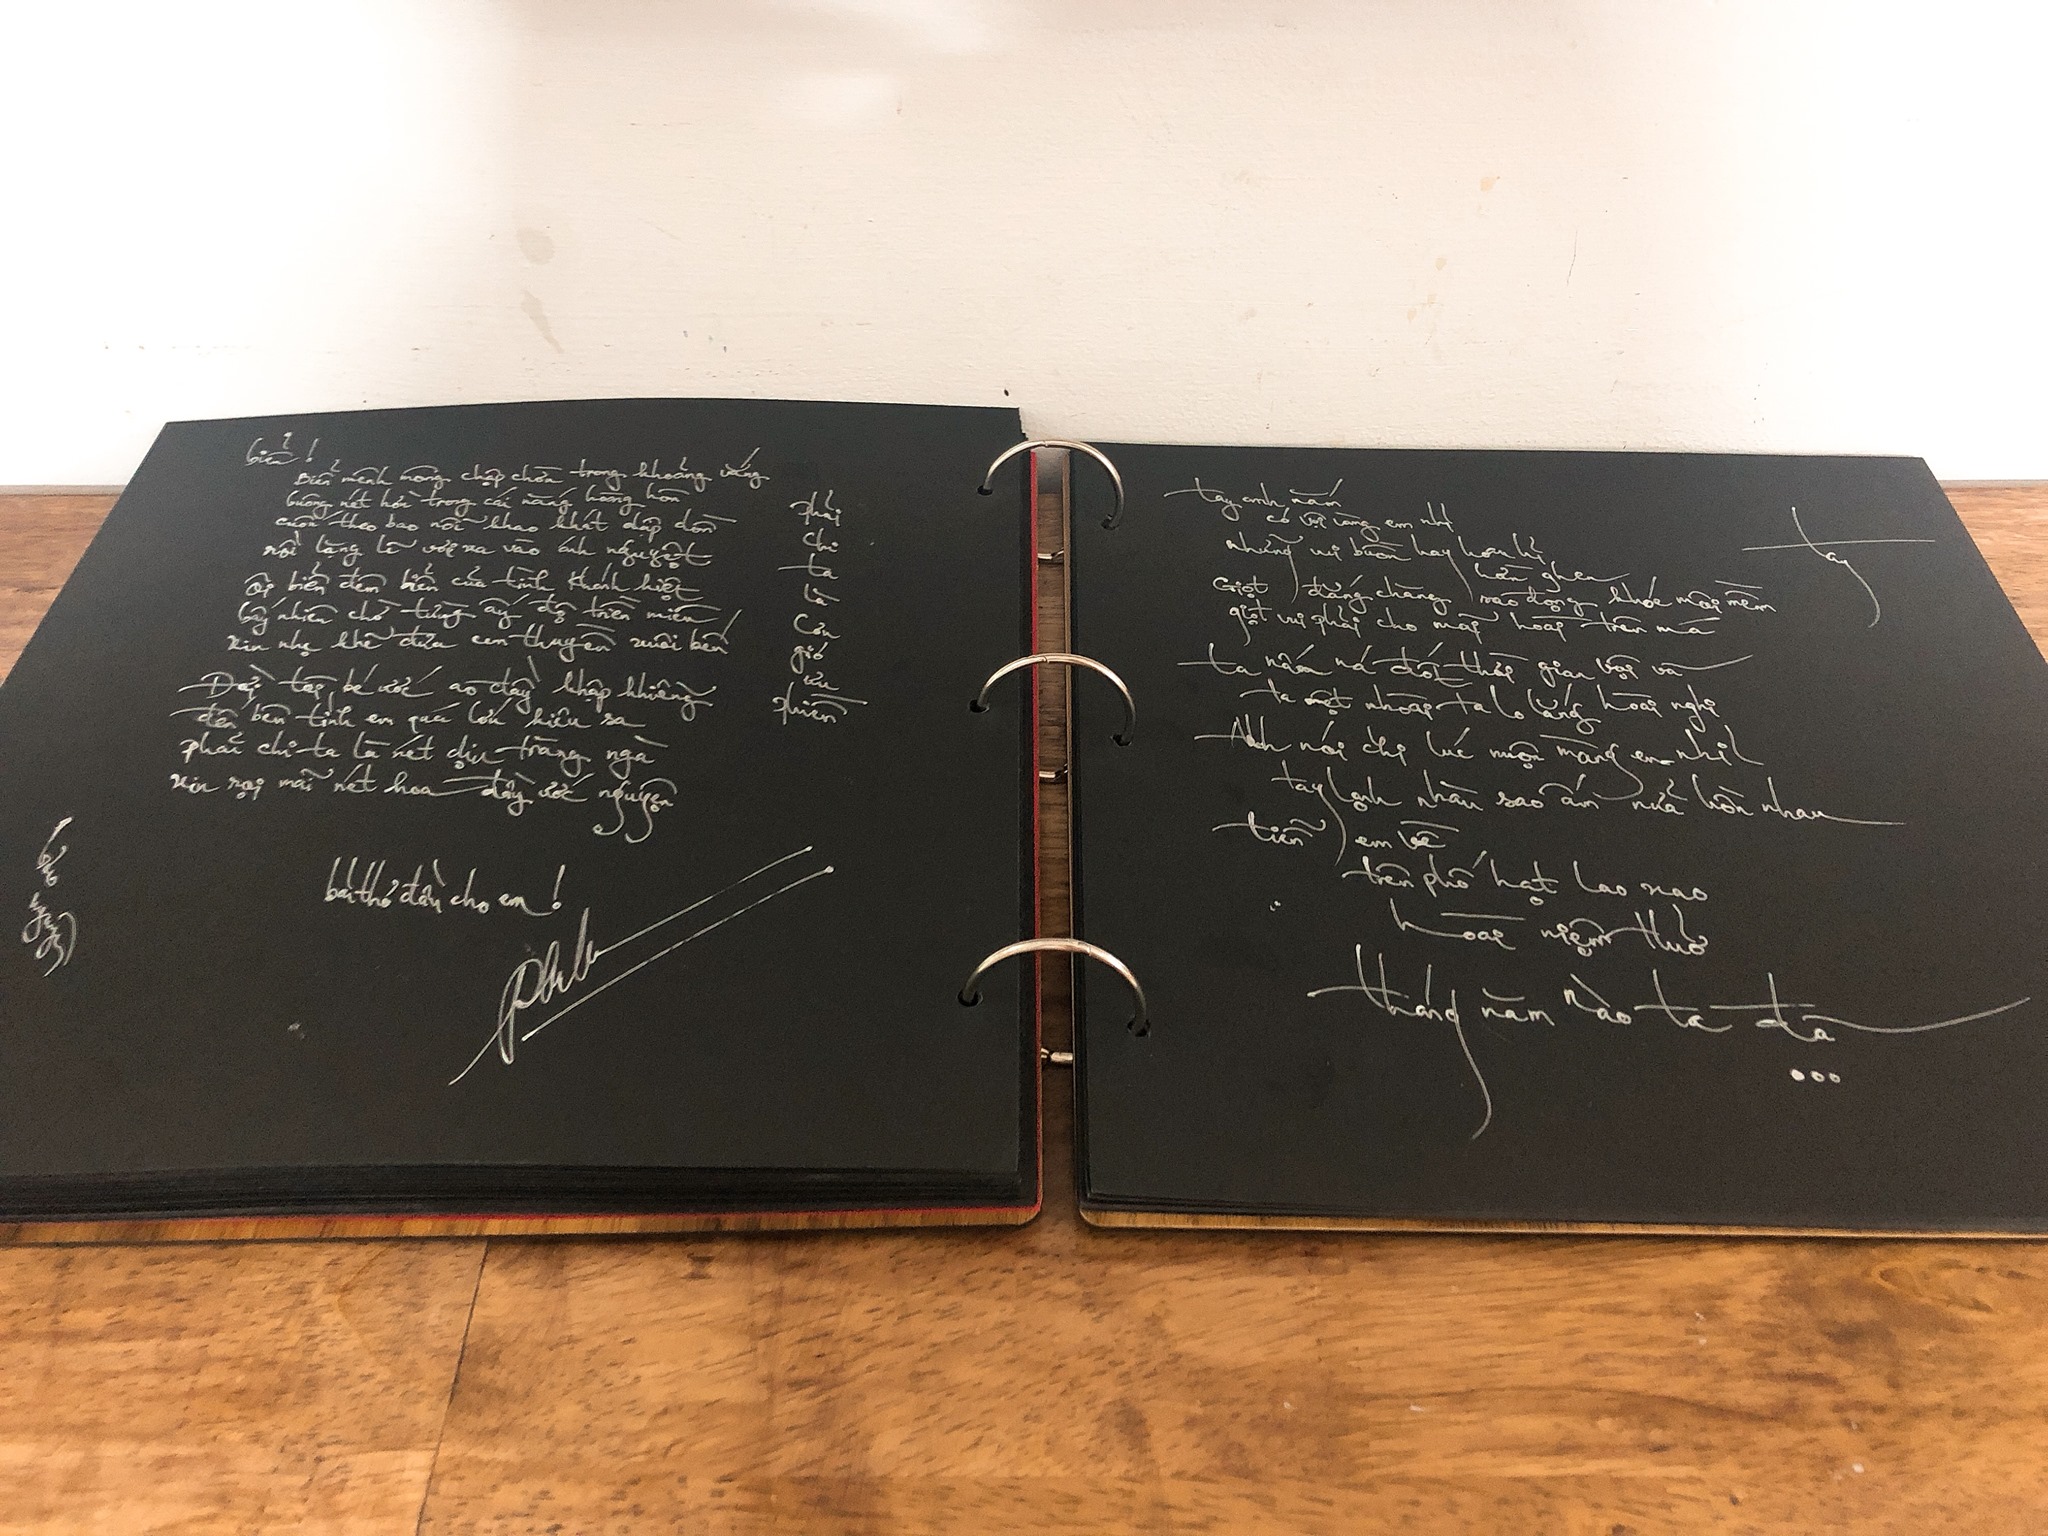 biển!
Biển mênh mông chập chờn trong khoảng vắng
buông nét hờn trong cái nắng hoàng hôn
cuốn theo bao nỗi khao khát dập dồn
rồi lặng lẽ với xa vào ánh nguyệt
ôi biển đêm biển của tình thánh khiết
bây nhiên chở từng ấy độ triền miên
xin nhẹ khẽ đưa em thuyền xuôi bến
Đời tôi bé ước ao đầy khập khiễng
đến bên tình em quá lớn kiêu sa
phải chi ta là nét dịu trăng ngà
xin rọi mãi nét hoa đầy ước nguyện
phải
chi
ta
là
Cơn
gió
ưu
phiền
bài thơ đầu cho em!
tay
tay anh nắm
có vội vàng em nhỉ
những vui buồn hay hoan hỉ
hờn ghen
Giọt đắng chăng xao động khóe môi mềm
giọt vui phải cho mãi hoài trên má
ta nắm ná đợi thời gian vội vã
ta một nhoài ta lo lắng hoài nghi
Anh nói chi lúc muộn màng em nhỉ
tay lạnh nhàu sao ấm nửa hồn nhau
tiễn em về
trên phố hạt lao xao
hoài niệm thuở
tháng năm nào ta đã
...